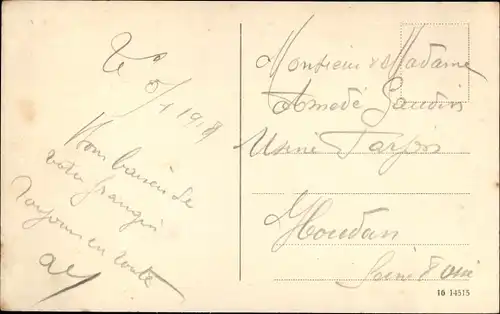 Le 6/1 1918
Bons baisers de
votre frangin
Toujours en route
Monsieur & Madame
Amedé Gaudin
Usine
Houdan
Seine & Oise
16 14515